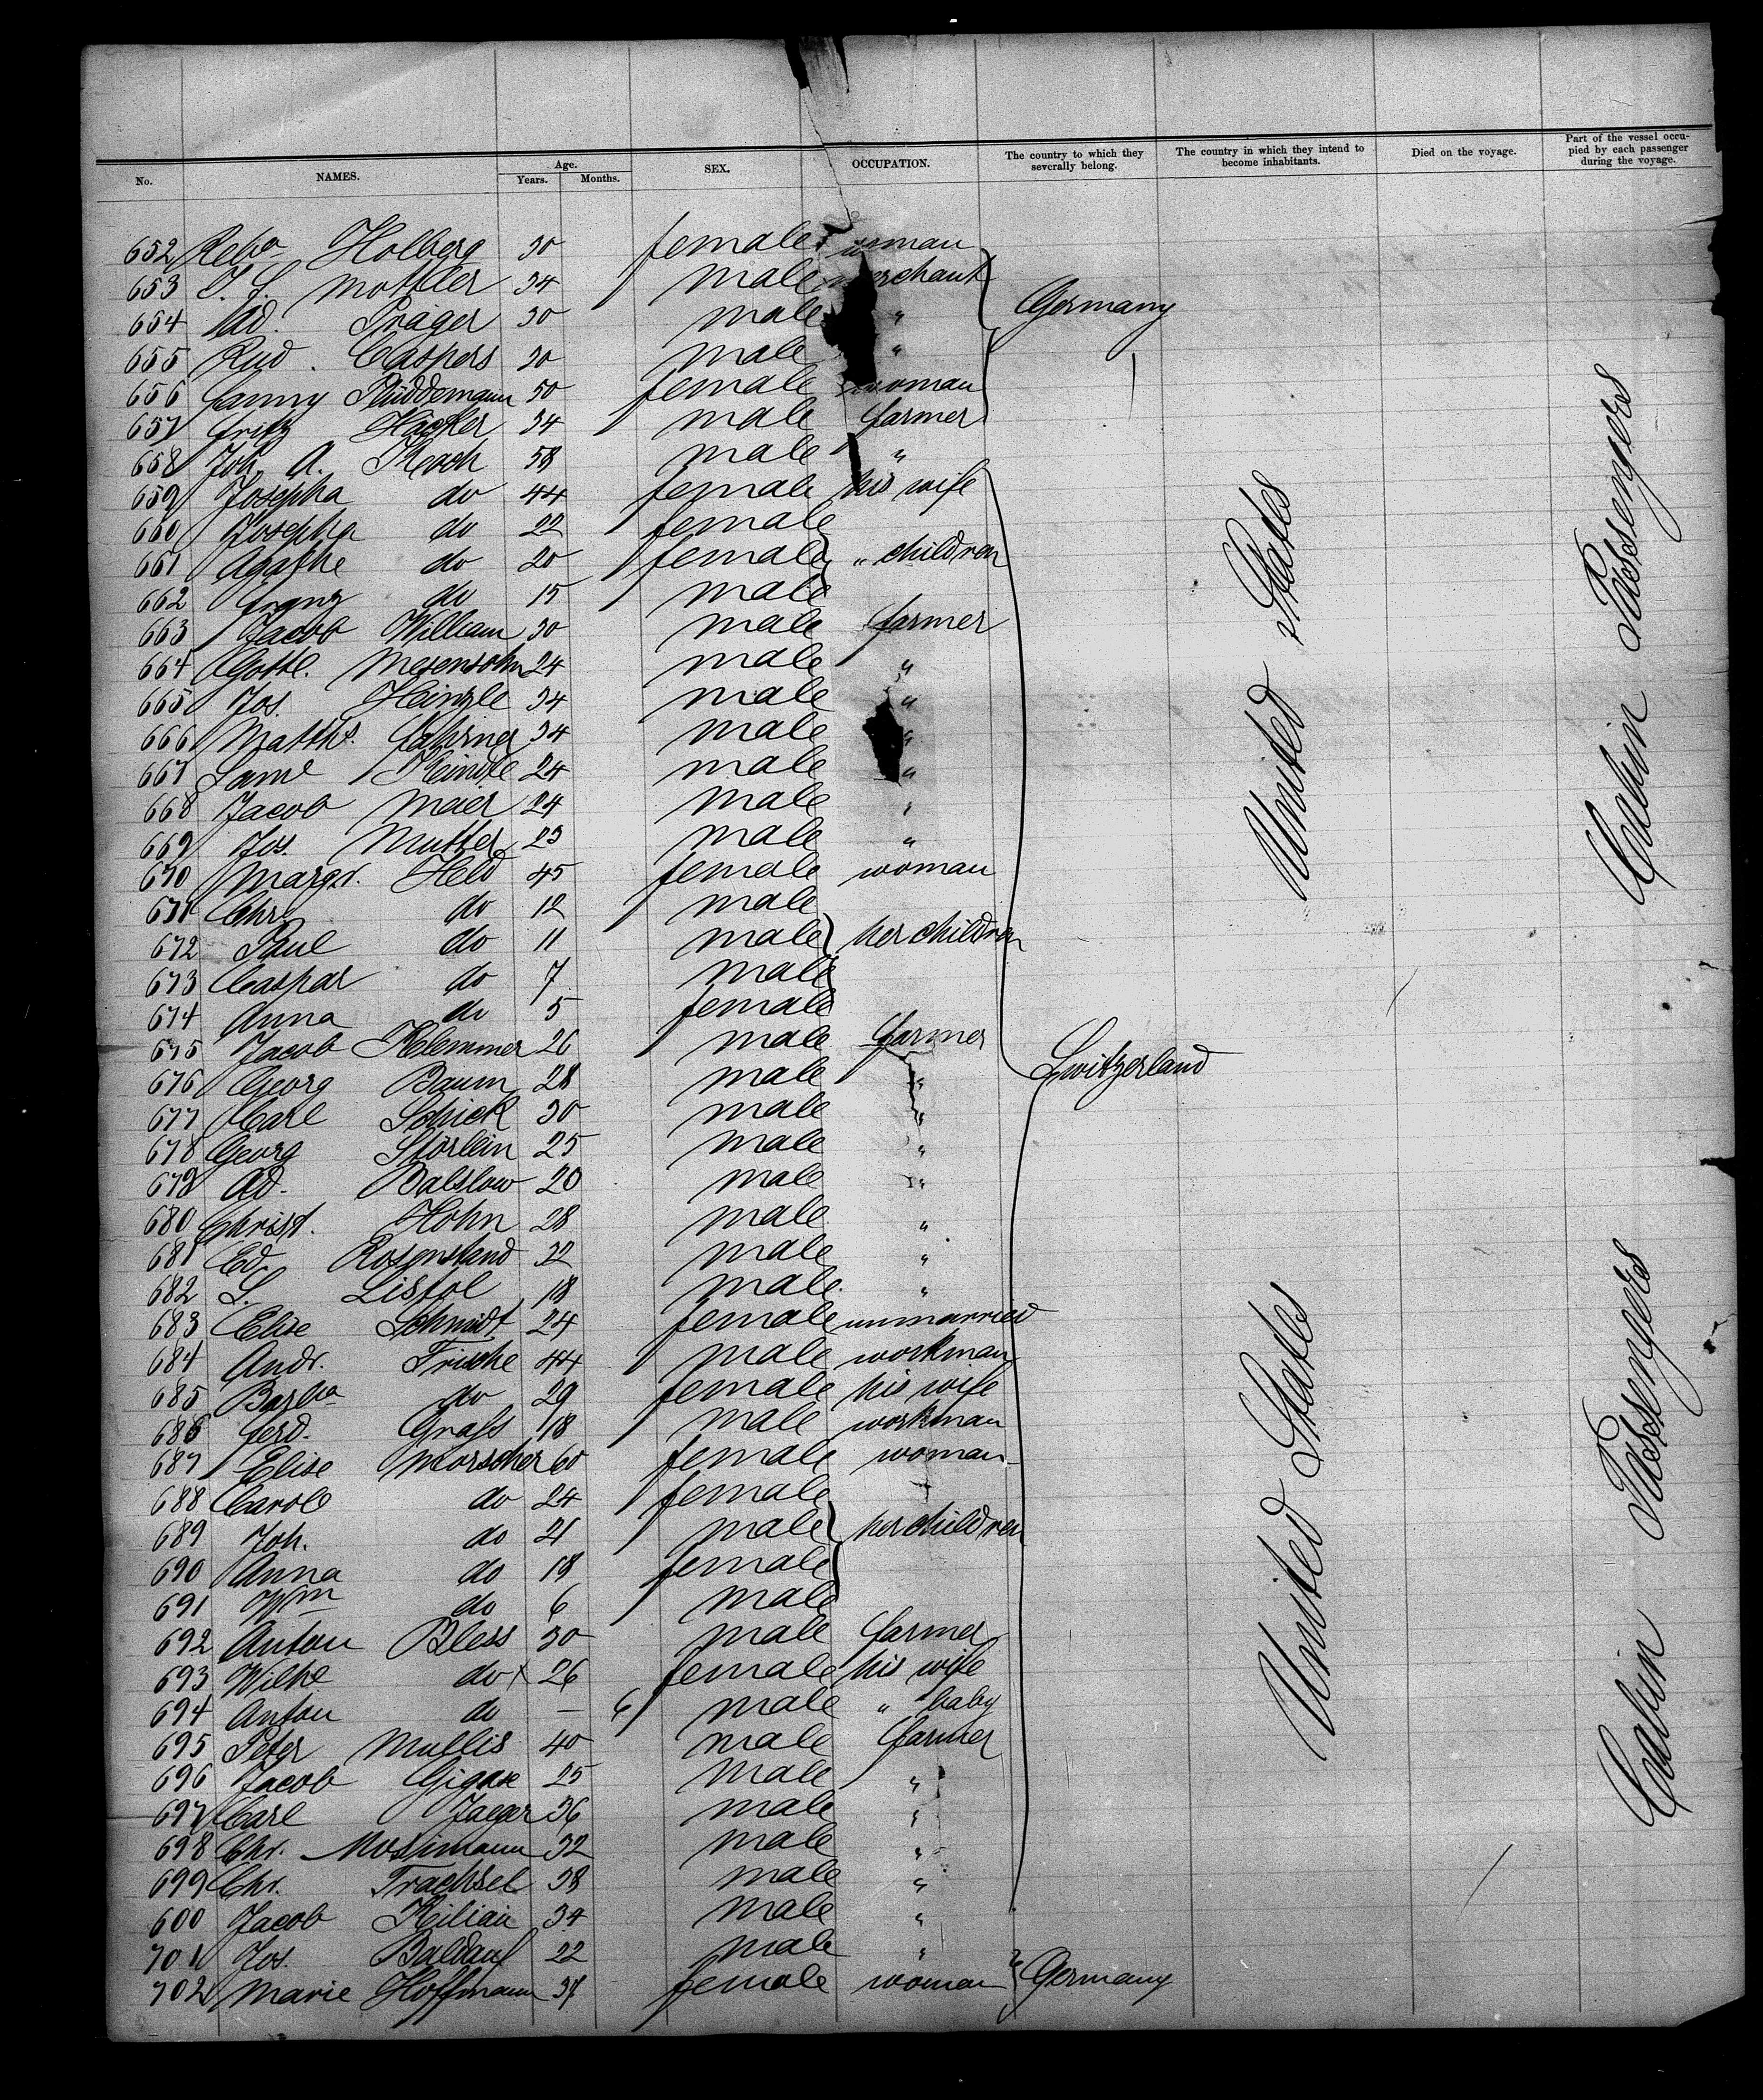 No. NAMES. Age. Years. Months. SEX. OCCUPATION. The country to which they severally belong. The country in which they intend to become inhabitants. Died on the voyage. Part of the vessel occupied by each passenger during the voyage.
652 Reba Holberg 30 female woman
653 J. S. Mottler 34 male merchant
654 Ad. Präger 30 male " Germany
655 Rud. Caspers 20 male "
656 Fanny Plüddemann 50 female woman
657 Fritz Häcker 34 male farmer
658 Joh. A. Koch 58 male "
659 Josepha do 44 female his wife
660 Josepha do 22 female
661 Agathe do 20 female " children
662 Franz do 15 male
663 Jacob William 30 male farmer
664 Gottl. Mesensohn 24 male "
665 Jos. Heinzle 34 male "
666 Matths. 34 male "
667 Saml Kindle 24 male "
668 Jacob Meier 24 male "
669 Jos. Mutter 23 male "
670 Margr. Held 45 female woman
671 Chr. do 12 male
672 Paul do 11 male her children
673 Caspar do 7 male
674 Anna do 5 female
675 Jacob Klemmer 26 male farmer
Switzerland
676 Georg Baum 28 male "
677 Carl Schick 30 male "
678 Georg Störlein 25 male "
679 Ad. Balslow 20 male "
680 Christ. Hohn 28 male "
681 Ed. Rosenstand 22 male "
682 S. Listol 18 male "
683 Elise Schmidt 24 female unmarried
684 Andr. Frische 44 male workman
685 Barba do 29 female his wife
686 Ferd. Grass 18 male workman
687 Elise Morscher 60 female woman
688 Carole do 24 female
689 Joh. do 21 male her children
690 Anna do 18 female
691 Wm do 6 male
692 Anton Bless 30 male farmer
693 Wilhe do x 26 female his wife
694 Anton do — 6 male " baby
695 Peter Mullis 40 male farmer
696 Jacob Gigax 25 male "
697 Carl Jaeger 36 male "
698 Chr. Mosimann 32 male "
699 Chr. Trachsel 38 male "
600 Jacob Kilian 34 male "
701 Jos. Baldauf 22 male "
702 Marie Hoffmann 37 female woman Germany
United States
United States
Cabin Passengers
Cabin Passengers